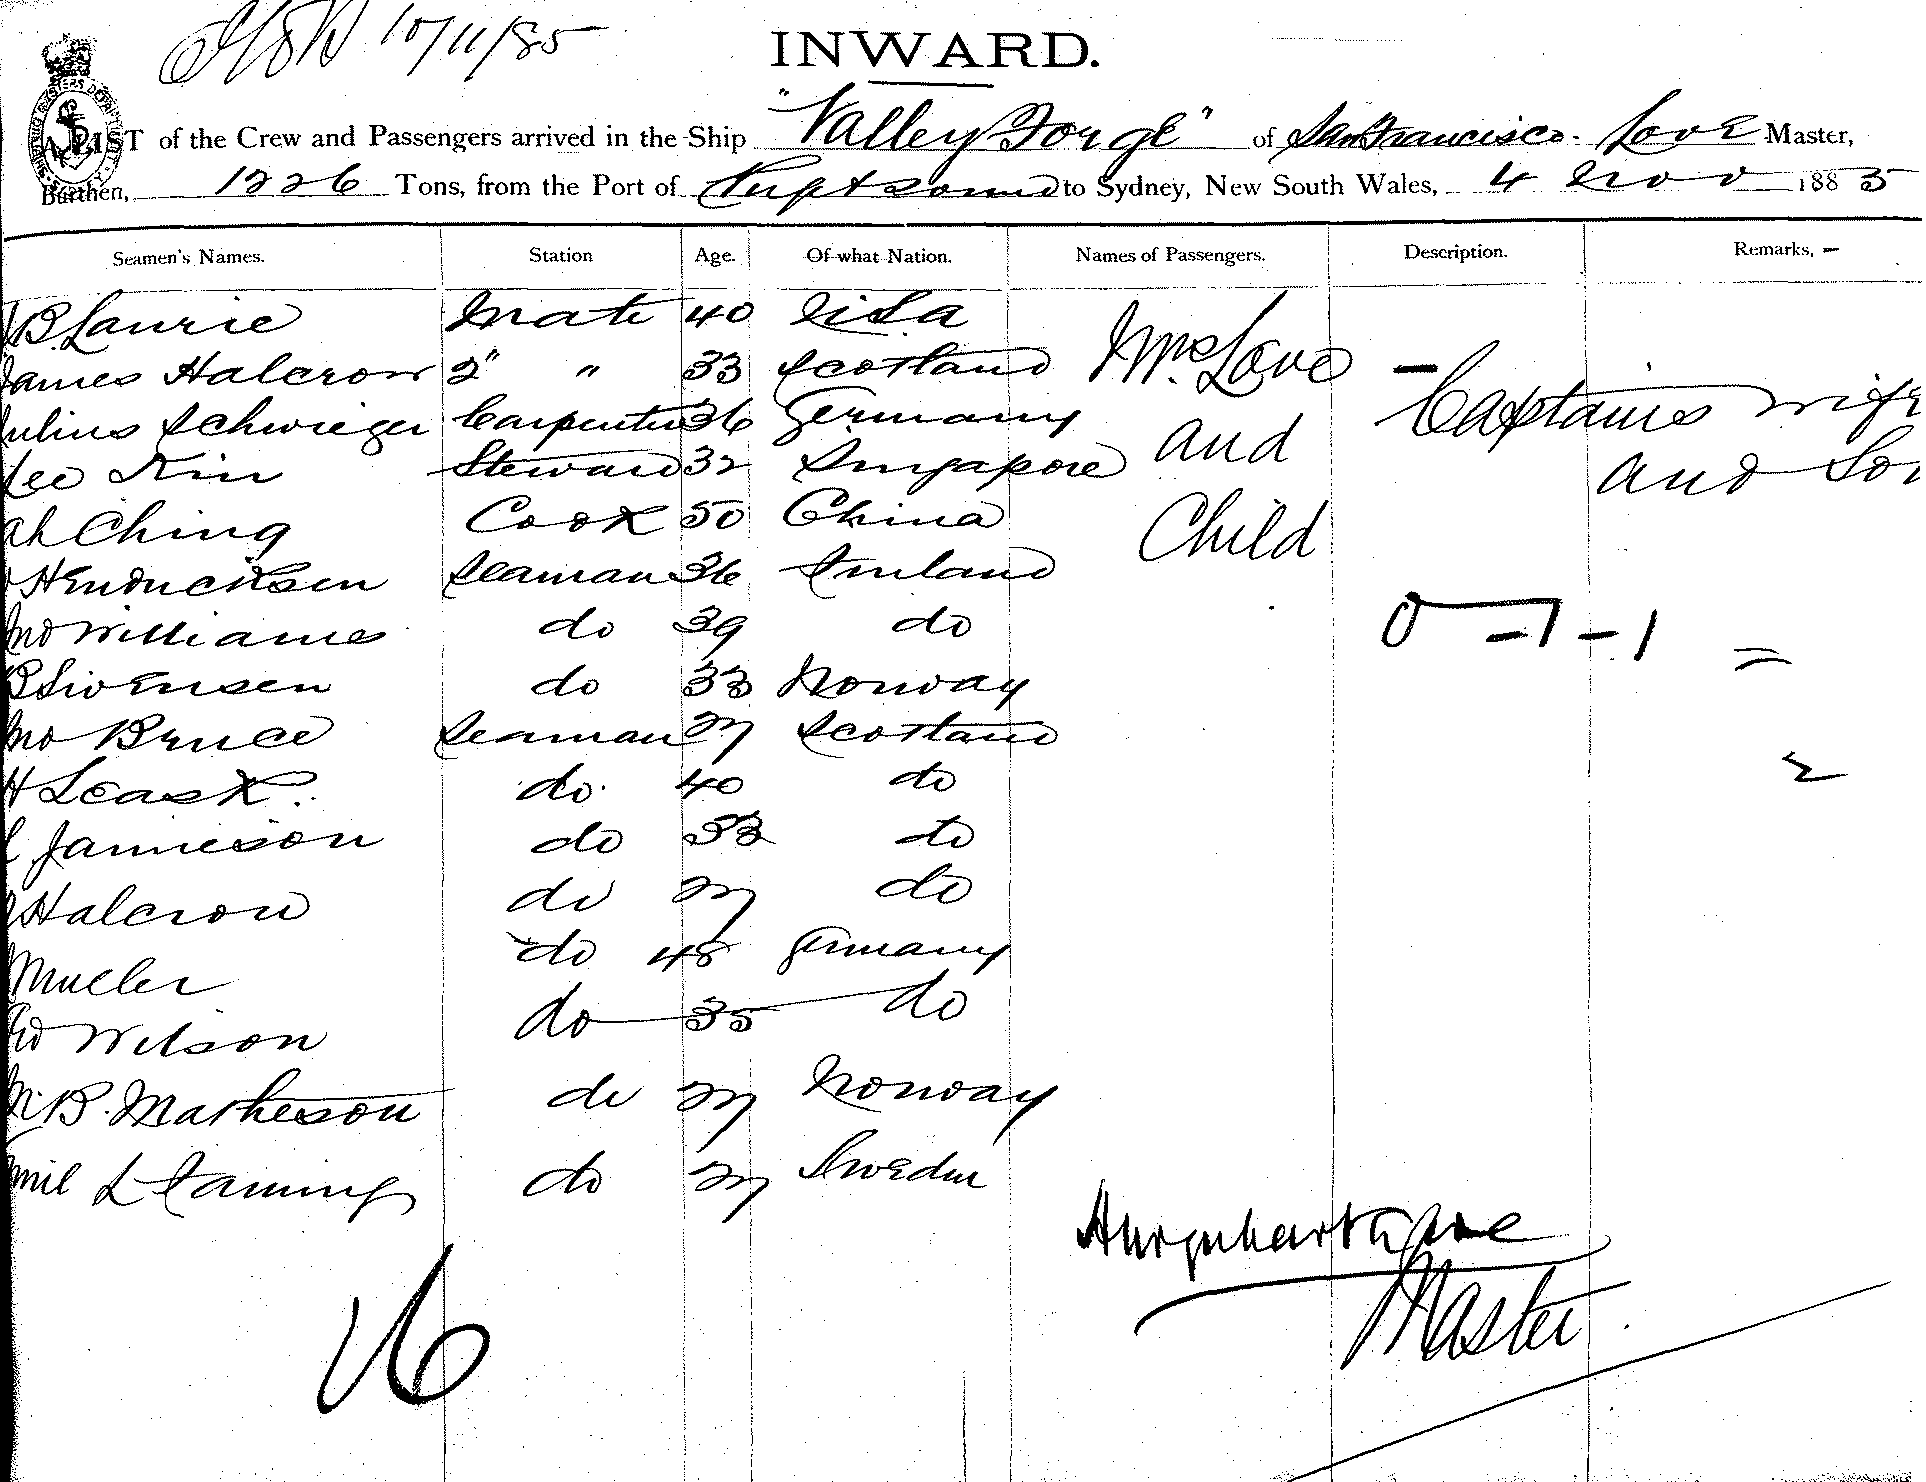 10/11/85
INWARD.
A LIST of the Crew and Passengers arrived in the Ship "Valley Forge" of San Francisco. Love Master,
Burthen, 1226 Tons, from the Port of to Sydney, New South Wales, 4 Nov 1885
Seamen's Names. Station Age. Of what Nation. Names of Passengers. Description. Remarks,
B. Laurie Mate 40 USa Mrs. Love —
James Halcrow 2" " 33 Scotland Captains wife
Julius Schwieger Carpenter 36 Germany and
Lee Kin Steward 32 Singapore and Son
Ah Ching Cook 50 China Child
Hendricksen Seaman 36 Finland
Jno Williams do 39 do 0 - 1 - 1 =
B Sivensen do 33 Norway
Jno Bruce Seaman 27 Scotland 2
H Leask do 40 do
Jamieson do 33 do
Halcrow do 27 do
Mueller do 48 Germany
Wilson do 35 do
B. Matheson do 27 Norway
Emil do 27 Sweden
Master
16